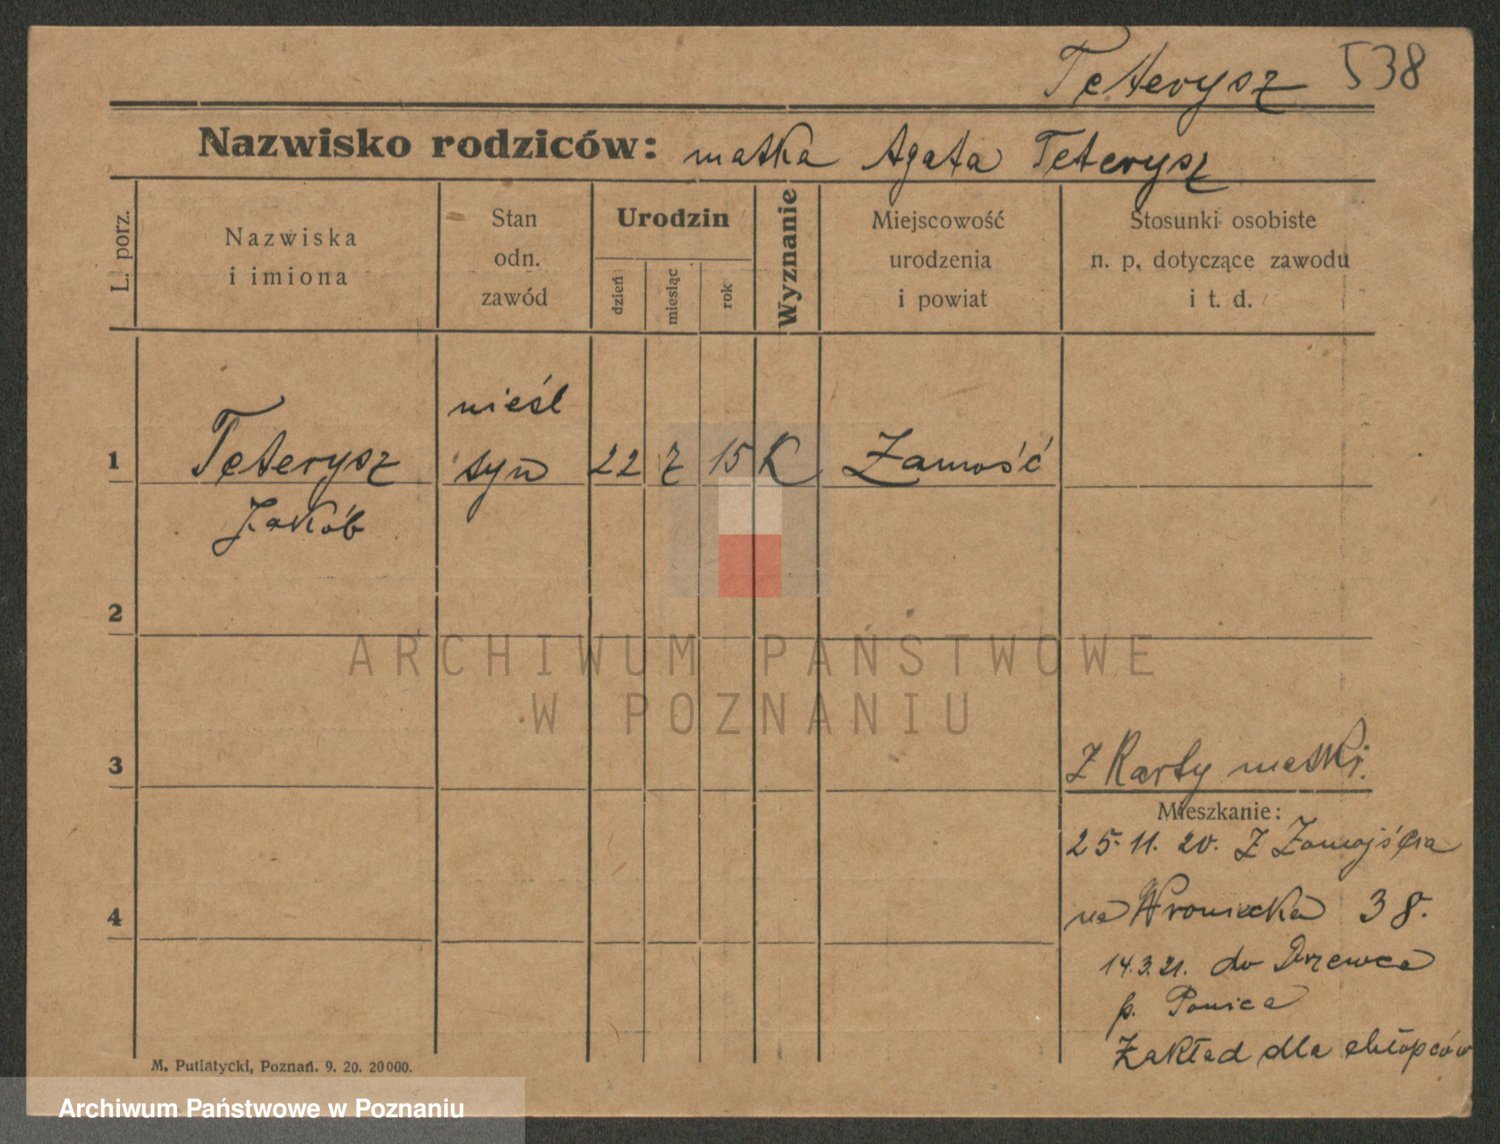 Teterysz 538
Nazwisko rodziców: matka Agata Teterysz
L. porz.
Nazwiska
i imiona
Stan
odn.
zawód
Urodzin
dzień
miesiąc
rok
Wyznanie
Miejscowość
urodzenia
i powiat
Stosunki osobiste
n. p. dotyczące zawodu
i t. d.
nieśl
1 Teterysz syn 22 7 15 K Zamość
Jakób
2
ARCHIWUM PAŃSTWOWE
W POZNANIU
3
Z Karty matki.
Mieszkanie:
25.11.20. Z Zamojścia
4
na Wroniecka 38.
14.3.21. do Drzewce
p. Ponica
Zakład dla chłopców
M. Putiatycki, Poznań. 9. 20. 20000.
Archiwum Państwowe w Poznaniu